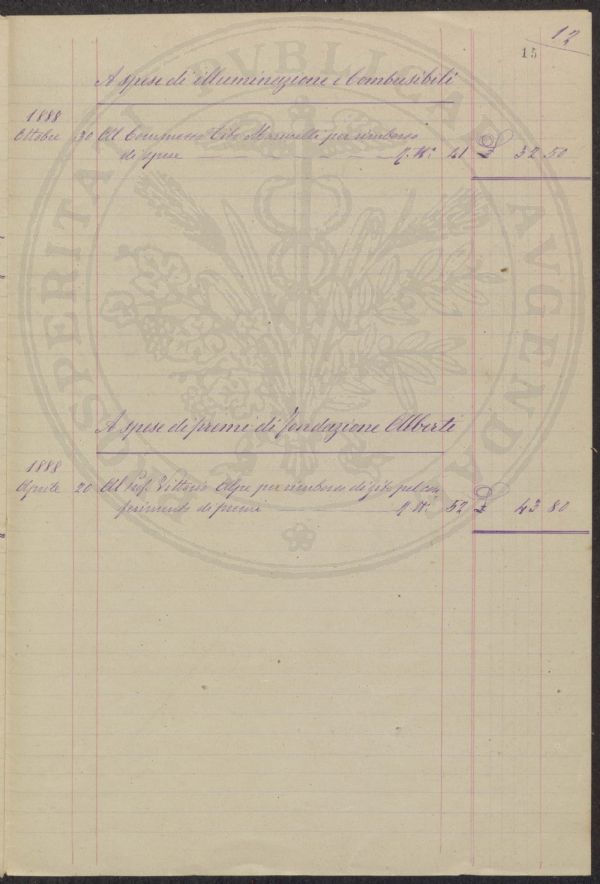 12
15
A spese di illuminazione e Combustibili
1888
Ottobre 30 Al Commesso Marcelli per rimborso
di spese Q. N.° 41 £ 32 50
A spese di premi di fondazione Alberti
1888
Aprile 20 Al Prof. Vittorio Alpe per rimborso di gite pel con
ferimento di premi Q. N.° 52 £ 43 80
PVBLICAE
AVGENDAE
PROSPERITATI